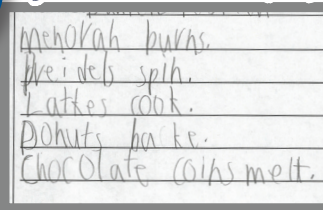 menorah burns.
Dreidels spin.
Latkes cook.
Donuts bake.
Chocolate coins melt.